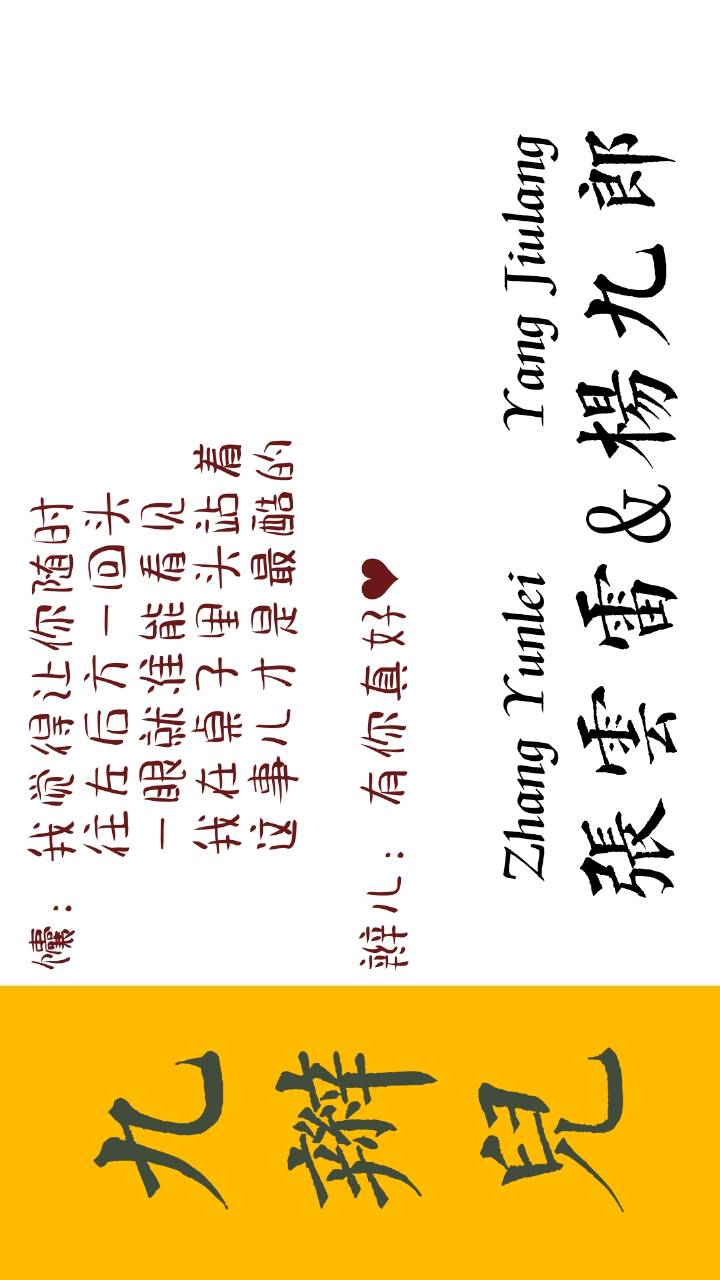 九
辮
兒
儾：我觉得让你随时
往左后方一回头
一眼就准能看见
我在桌子里头站着
这事儿才是最酷的
辫儿：有你真好♥
Zhang Yunlei Yang Jiulang
張雲雷&楊九郎